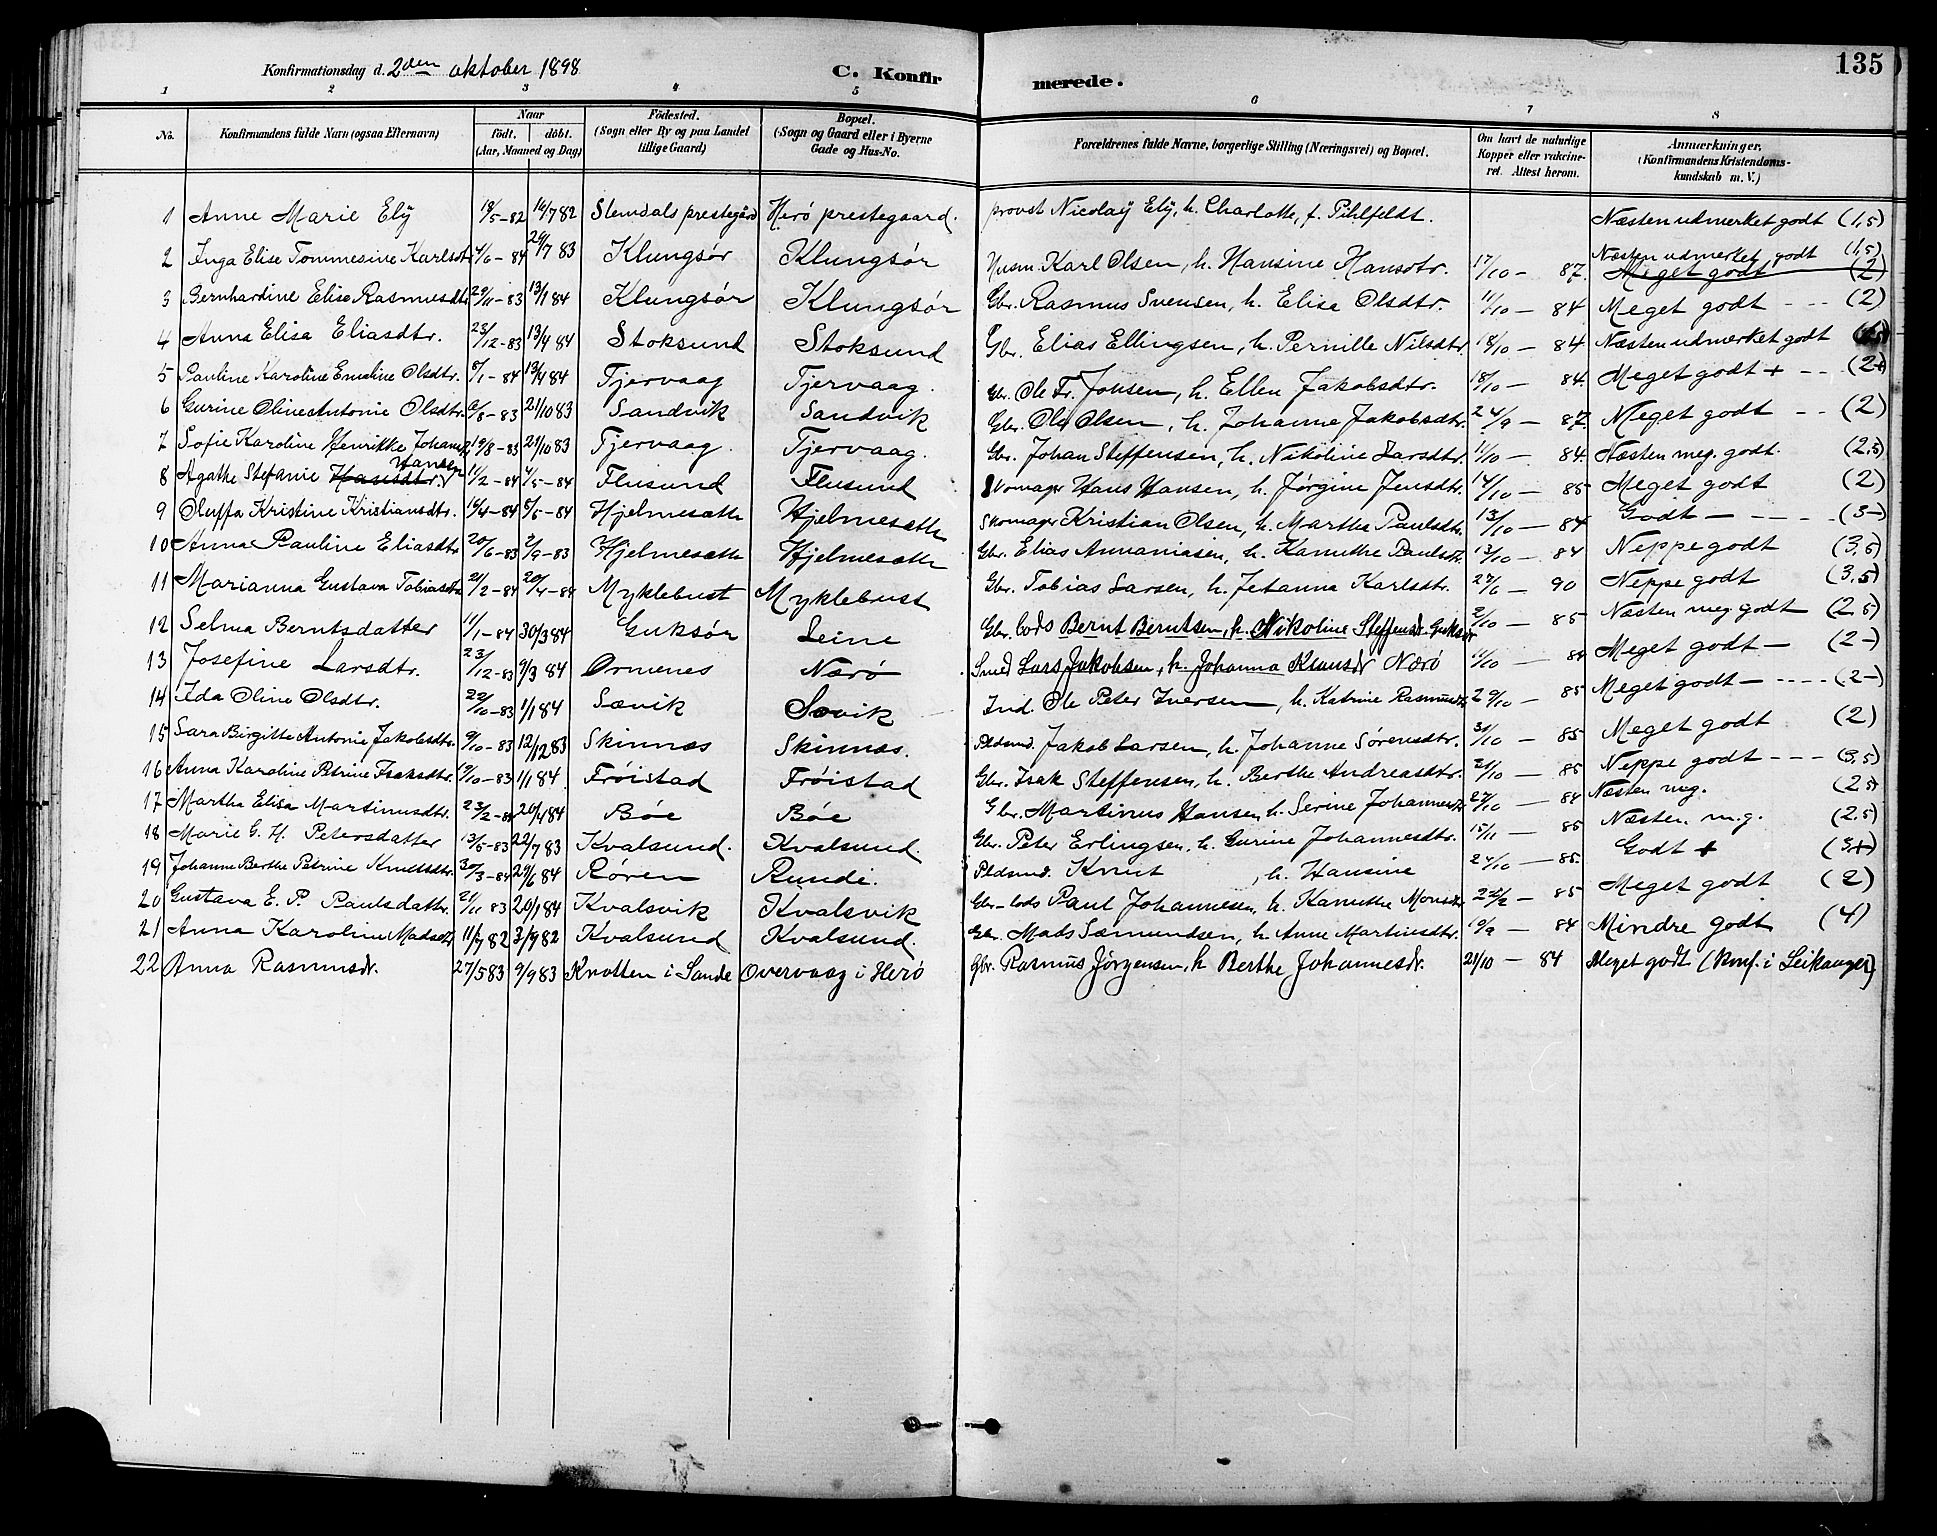 135
Konfirmationsdag d. 2den oktober 1898 C. Konfirmerede.
1 2 3 4 5 6 7 8
No. Konfirmandens fulde Navn (ogsaa Efternavn) Naar født. døbt. (Aar, Maaned og Dag) Födested. (Sogn eller By og paa Landet tillige Gaard) Bopæl. (Sogn og Gaard eller i Byerne Gade og Hus-No. Forældrenes fulde Navne, borgerlige Stilling (Næringsvei) og Bopæl. Om havt de naturlige Kopper eller vakcineret. Attest herom. Anmærkninger. (Konfirmandens Kristendomskundskab m. V.)
1 Anne Marie Ely 18/5-82 16/7 82 Slemdals prestegård Herö prestegaard. provst Nicolaÿ Elÿ, h. Charlotte, f. Pihlfeldt. Næsten udmerket godt (1,5)
2 Inga Elise Tommesine Karlsdtr 4/6-84 20/7 83 Klungsör Klungsör Husm. Karl Olsen, h. Hansine Hansdtr. 17/10 - 87. Næsten udmerket godt (1,5) Meget godt (2)
3 Bernhardine Elise Rasmusdtr 29/11-83 13/1 84 Klungsör Klungsör Gbr. Rasmus Svensen, h. Elise Olsdtr. 11/10 - 84 Meget godt - - - (2)
4 Anna Elisa Eliasdtr. 23/12-83 13/4 84 Stoksund Stoksund Gbr. Elias Ellingsen, h. Pernille Nilsdtr. 18/10 - 84 Næsten udmerket godt
5 Pauline Karoline Emeline Olsdtr. 8/1-84 13/4 84 Tjervaag Tjervaag. Gbr. Ole Fr. Johsen, h. Ellen Jakobsdtr. 18/10 - 84. Meget godt + - - - (2+
6 Gurine Oline Antonie Olsdtr. 9/8-83 21/10 83 Sandvik Sandvik Gbr. Ole Olsen, h. Johanne Jakobsdtr. 24/9 - 87. Meget godt - - (2)
7 Sofie Karoline Henrikke Johansd 19/8-83 21/10 83 Tjervaag. Tjervaag. Gbr. Johan Steffensen, h. Nikoline Larsdtr. 11/10 - 84. Næsten meg. godt. (2.5)
8 Agathe Stefanie Hansdtr. Hansen 11/2-84 4/5-84 Flusund Flusund Skomager Hans Hansen, h. Jørgine Jensdtr. 14/10 - 85 Meget godt (2)
9 Oluffa Kristine Kristiansdtr. 14/4-84 8/5-84 Hjelmesætth Hjelmesætth Skomager Kristian Olsen, h. Marthe Paulsdtr. 13/10 - 84 Godt - - - - - (3-)
10 Anna Pauline Eliasdtr 20/6-83 2/9-83 Hjelmesætth Hjelmesætth Gbr. Elias Annaniasen, h. Kanutte Paulsdtr 13/10 - 84 Neppe godt (3,5)
11 Marianna Gustava Tobiasdtr 21/2-84 20/4-84 Myklebust Myklebust Gbr. Tobias Larsen, h. Jetanna Karlsdtr. 27/6 - 90 Neppe godt (3,5)
12 Selma Berntsdatter 11/1-84 30/3 84 Guksör Leine Gbr. Lods Bernt Berntsen, h. Nikoline Steffensdr. Guksör 2/10 - 85 Næsten meg. godt (2 5)
13 Josefine Larsdtr. 23/12-83 9/3 84 Ormenes Nærö Smed Lars Jakobsen, h. Johanna Klausdr Nærö 11/10 - 84 Meget godt - (2-)
14 Ida Oline Olsdtr. 22/10-83 1/1 84 Sævik Sævik Ind. Ole Peter Iversen, h. Katrine Rasmusdtr 29/10 - 85 Meget godt - - - - - (2-)
15 Sara Birgitte Antonie Jakobsdtr. 9/10-83 12/12 83 Skinnæs Skinnæs. Pldsmd. Jakob Larsen, h. Johanne Sørensdtr. 31/10 - 85 Meget godt (2)
16 Anna Karoline Petrine Isaksdtr. 19/10-83 1/1 84 Fröistad Fröistad Gbr. Isak Steffensen, h. Berthe Andreasdtr. 21/10 - 85 Neppe godt - - - (3,5)
17 Martha Elisa Martinusdtr. 23/2-84 20/4 84 Böe Böe Gbr. Martinus Hansen h. Serine Johannesdtr. 27/10 - 84 Næsten meg. (2 5)
18 Marie G. H. Petersdatter 13/5-83 22/7 83 Kvalsund. Kvalsund. Gbr. Peter Erlingsen, h. Gurine Johannesdtr. 15/11 - 85 Næsten. m. g. (2.5)
19 Johanne Berthe Petrine Knutsdtr. 30/3-84 29/6 84 Røren Runde. Pldsmd. Knut , h. Hansine 24/10 - 85. Godt + (3+)
20 Gustava E. P. Paulsdattr. 21/11 83 20/1 84 Kvalsvik Kvalsvik Gbr-lods Paul Johannesen, h. Kanutthe Monsdtr 22/2 - 85 Meget godt (2)
21 Anna Karoline Madsdtr 11/7 82 3/9 82 Kvalsund Kvalsund. Gbr. Mads Sæmundsen, h Anne Martinsdtr. 10/9 - 84 Mindre godt (4)
22 Anna Rasmusdr. 27/5 83 9/9 83 Knotten i Sande Overvaag i Herö Gbr. Rasmus Jörgensen, h Berthe Johannesdr. 21/10 - 84 Meget godt (Konf. i Leikanger)